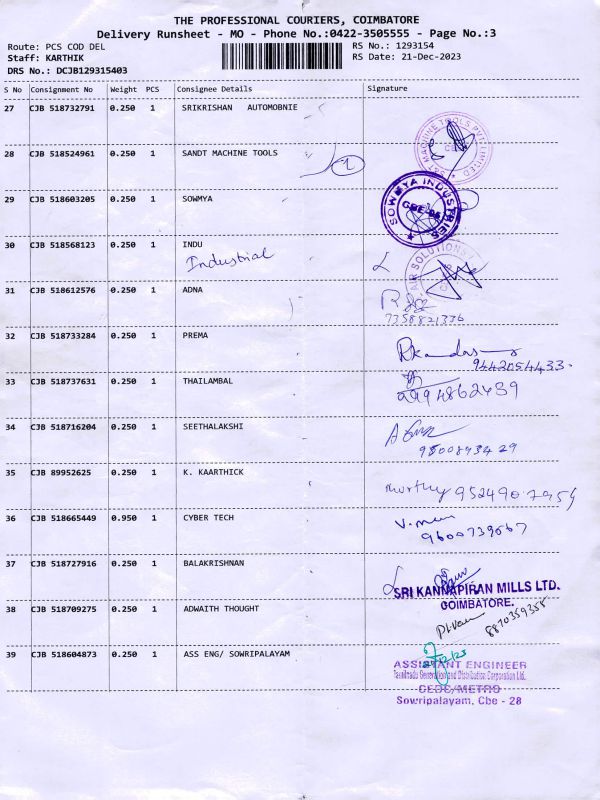 THE PROFESSIONAL COURIERS, COIMBATORE
Delivery Runsheet - MO - Phone No.:0422-3505555 - Page No.:3
Route: PCS COD DEL
RS No.: 1293154
Staff: KARTHIK
RS Date: 21-Dec-2023
DRS No.: DCJB129315403
S No Consignment No Weight PCS Consignee Details Signature
27 CJB 518732791 0.250 1 SRIKRISHAN AUTOMOBNIE
28 CJB 518524961 0.250 1 SANDT MACHINE TOOLS
S&T MACHINE TOOLS PVT. LIMITED
29 CJB 518603205 0.250 1 SOWMYA
SOWMYA INDUSTRIES
30 CJB 518568123 0.250 1 INDU
Industrial
AIR SOLUTIONS
31 CJB 518612576 0.250 1 ADNA
7358821336
32 CJB 518733284 0.250 1 PREMA
9442054433
33 CJB 518737631 0.250 1 THAILAMBAL
34 CJB 518716204 0.250 1 SEETHALAKSHI
35 CJB 89952625 0.250 1 K. KAARTHICK
Murthy
36 CJB 518665449 0.950 1 CYBER TECH
37 CJB 518727916 0.250 1 BALAKRISHNAN
SRI KANNAPIRAN MILLS LTD.
COIMBATORE.
38 CJB 518709275 0.250 1 ADWAITH THOUGHT
8870359358
39 CJB 518604873 0.250 1 ASS ENG/ SOWRIPALAYAM
ASSISTANT ENGINEER
Tamilnadu Generation and Distribution Corporation Ltd.
CEDC/METRO
Sowripalayam, Cbe - 28